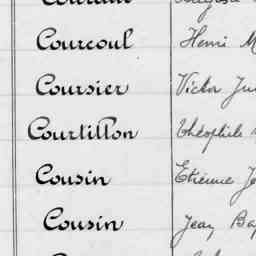 Courcoul Henri M
Coursier Victor Ju
Courtillon Théophile
Cousin Etienne Je
Cousin Jean Bap